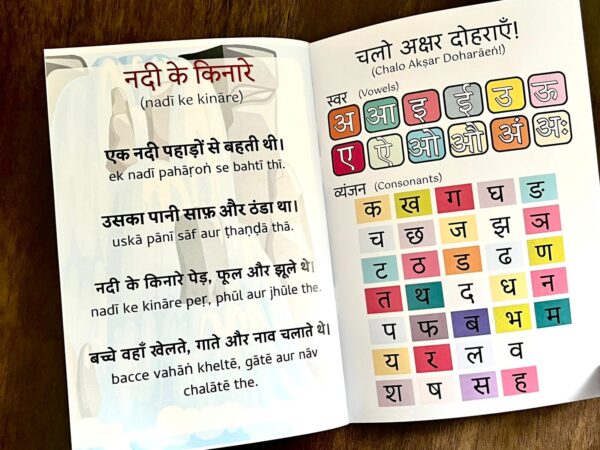 नदी के किनारे
(nadī ke kināre)
एक नदी पहाड़ों से बहती थी।
ek nadī pahāṛoṅ se bahtī thī.
उसका पानी साफ़ और ठंडा था।
uskā pānī sāf aur ṭhaṇḍā thā.
नदी के किनारे पेड़, फूल और झूले थे।
nadī ke kināre peṛ, phūl aur jhūle the.
बच्चे वहाँ खेलते, गाते और नाव चलाते थे।
bacce vahāṅ kheltē, gātē aur nāv
chalātē the.
चलो अक्षर दोहराएँ!
(Chalo Akṣar Doharāeṅ!)
स्वर (Vowels)
अ आ इ ई उ ऊ
ए ऐ ओ औ अं अः
व्यंजन (Consonants)
क ख ग घ ङ
च छ ज झ ञ
ट ठ ड ढ ण
त थ द ध न
प फ ब भ म
य र ल व
श ष स ह